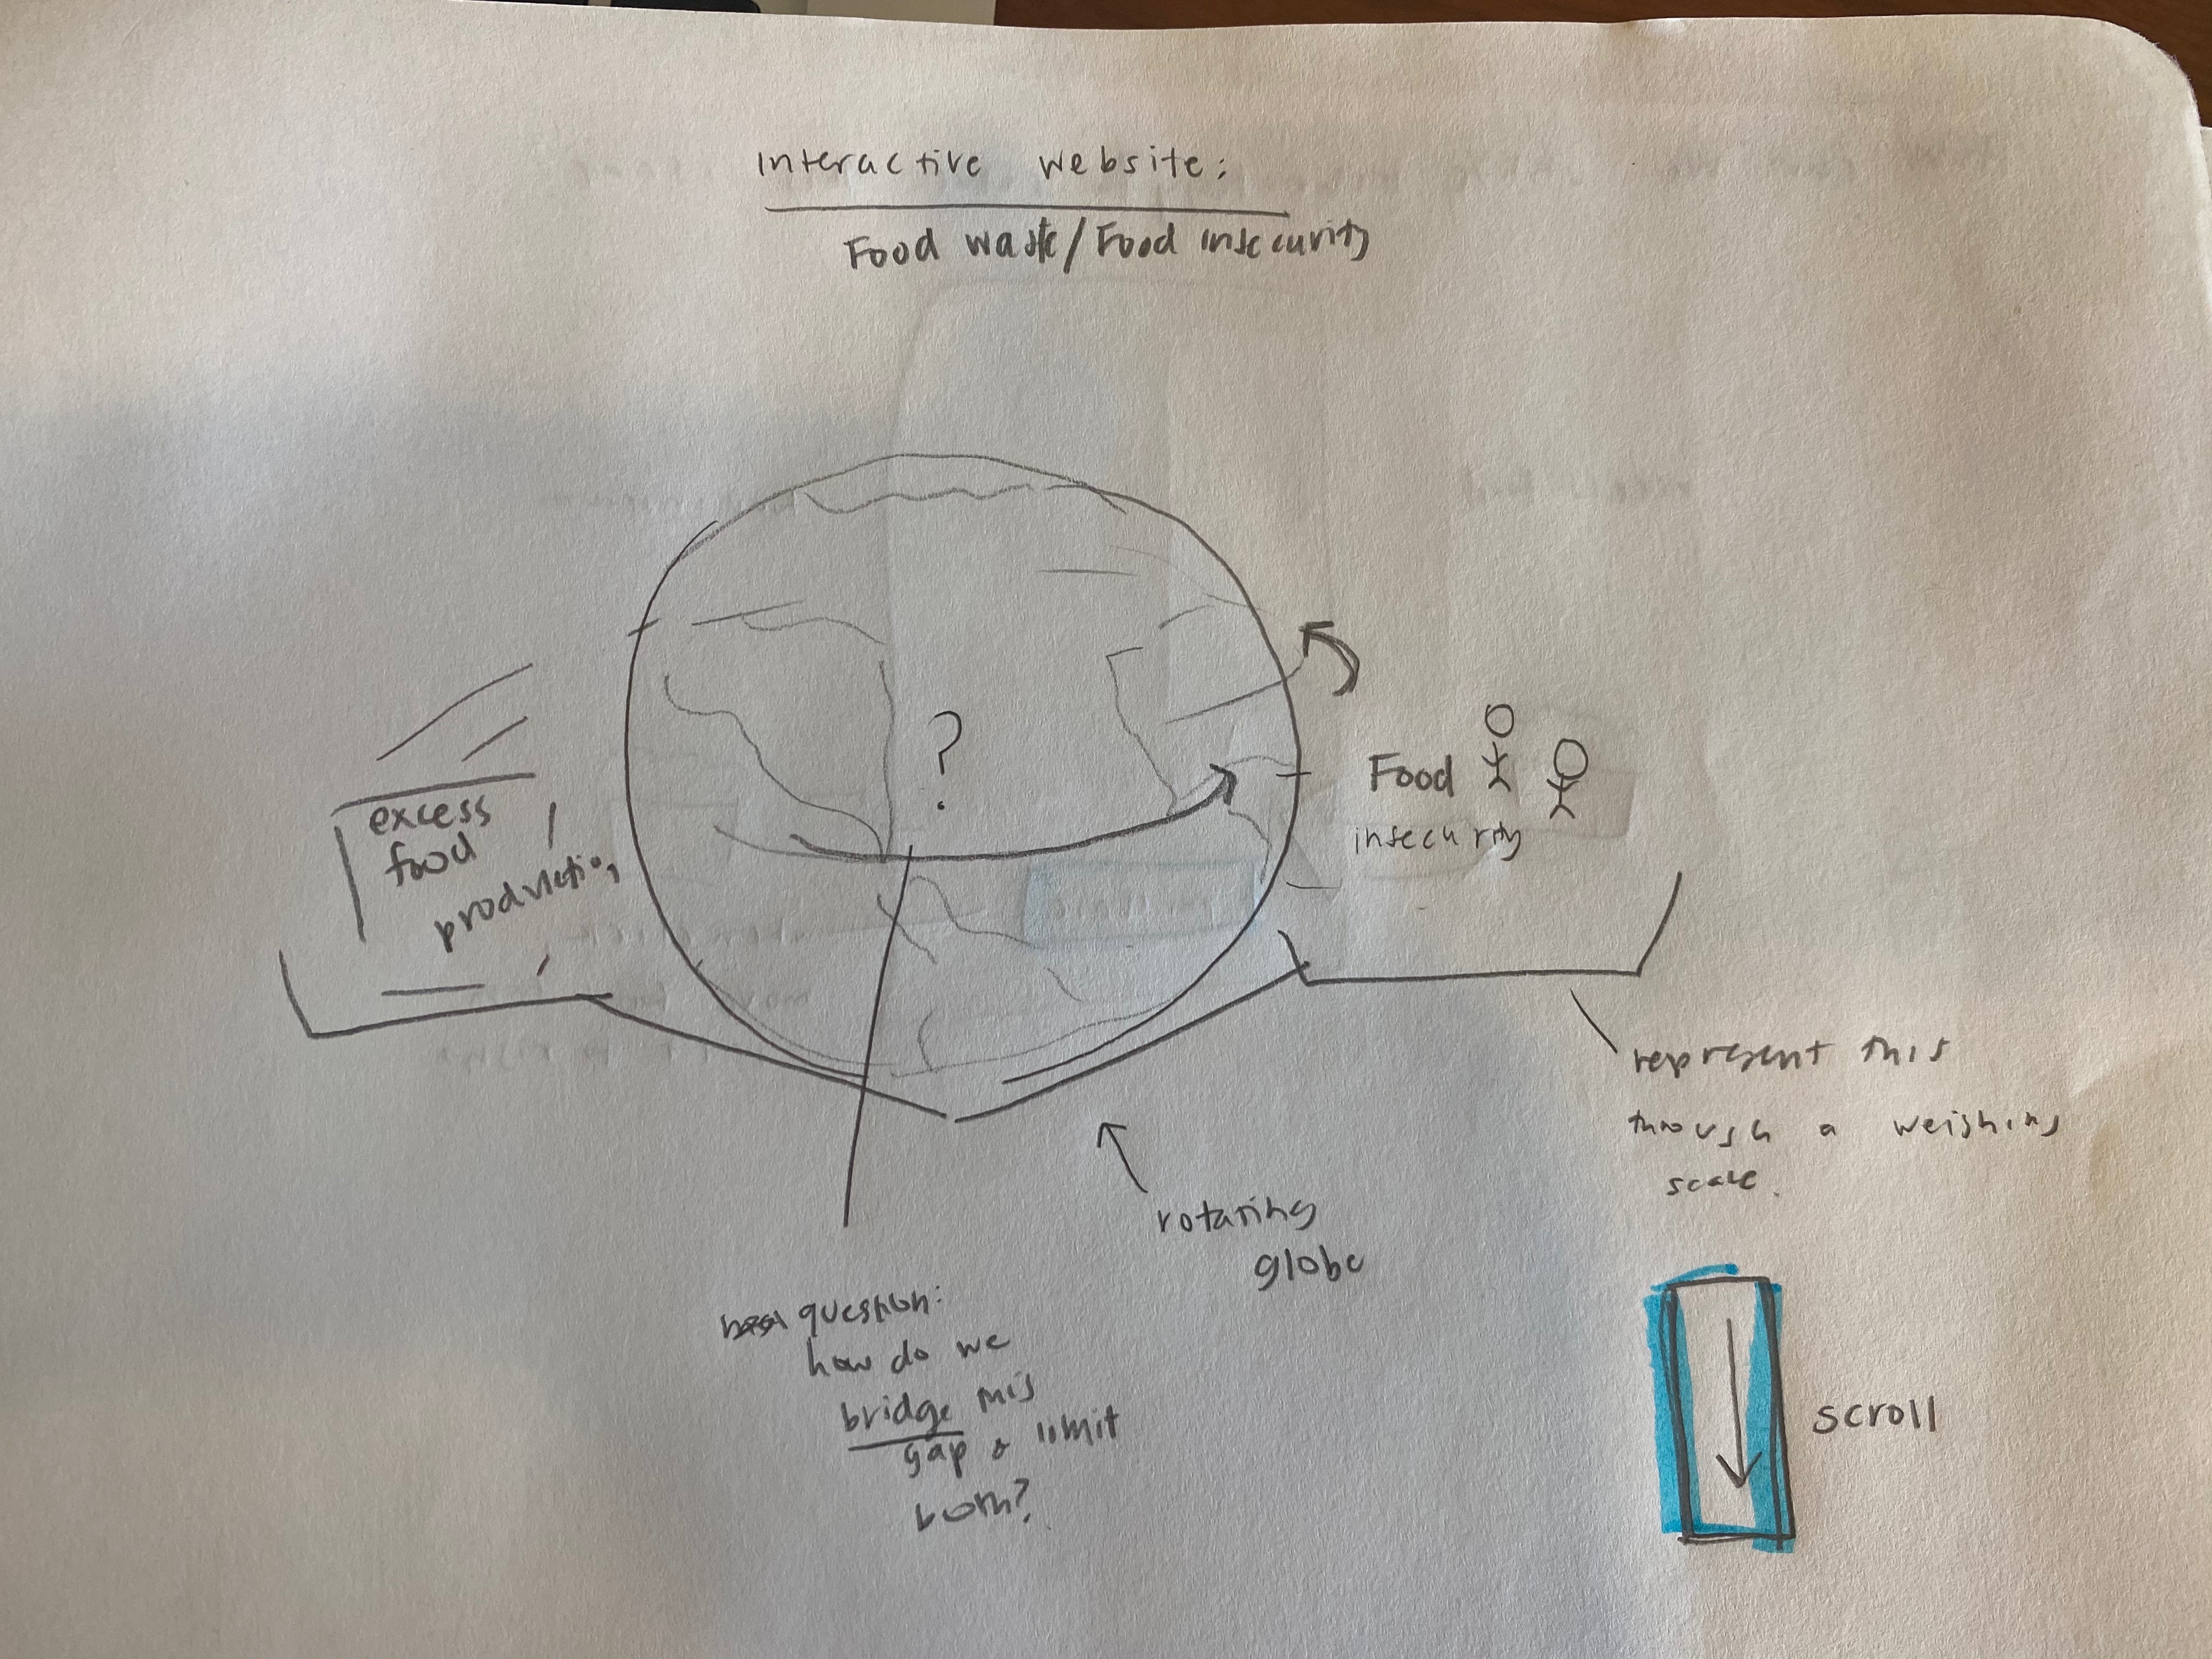 Interactive website:
Food waste/Food insecurity
?
excess
food
production
Food
insecurity
represent this
through a weighing
scale.
rotating
globe
question:
how do we
bridge this
gap & limit
both?
scroll